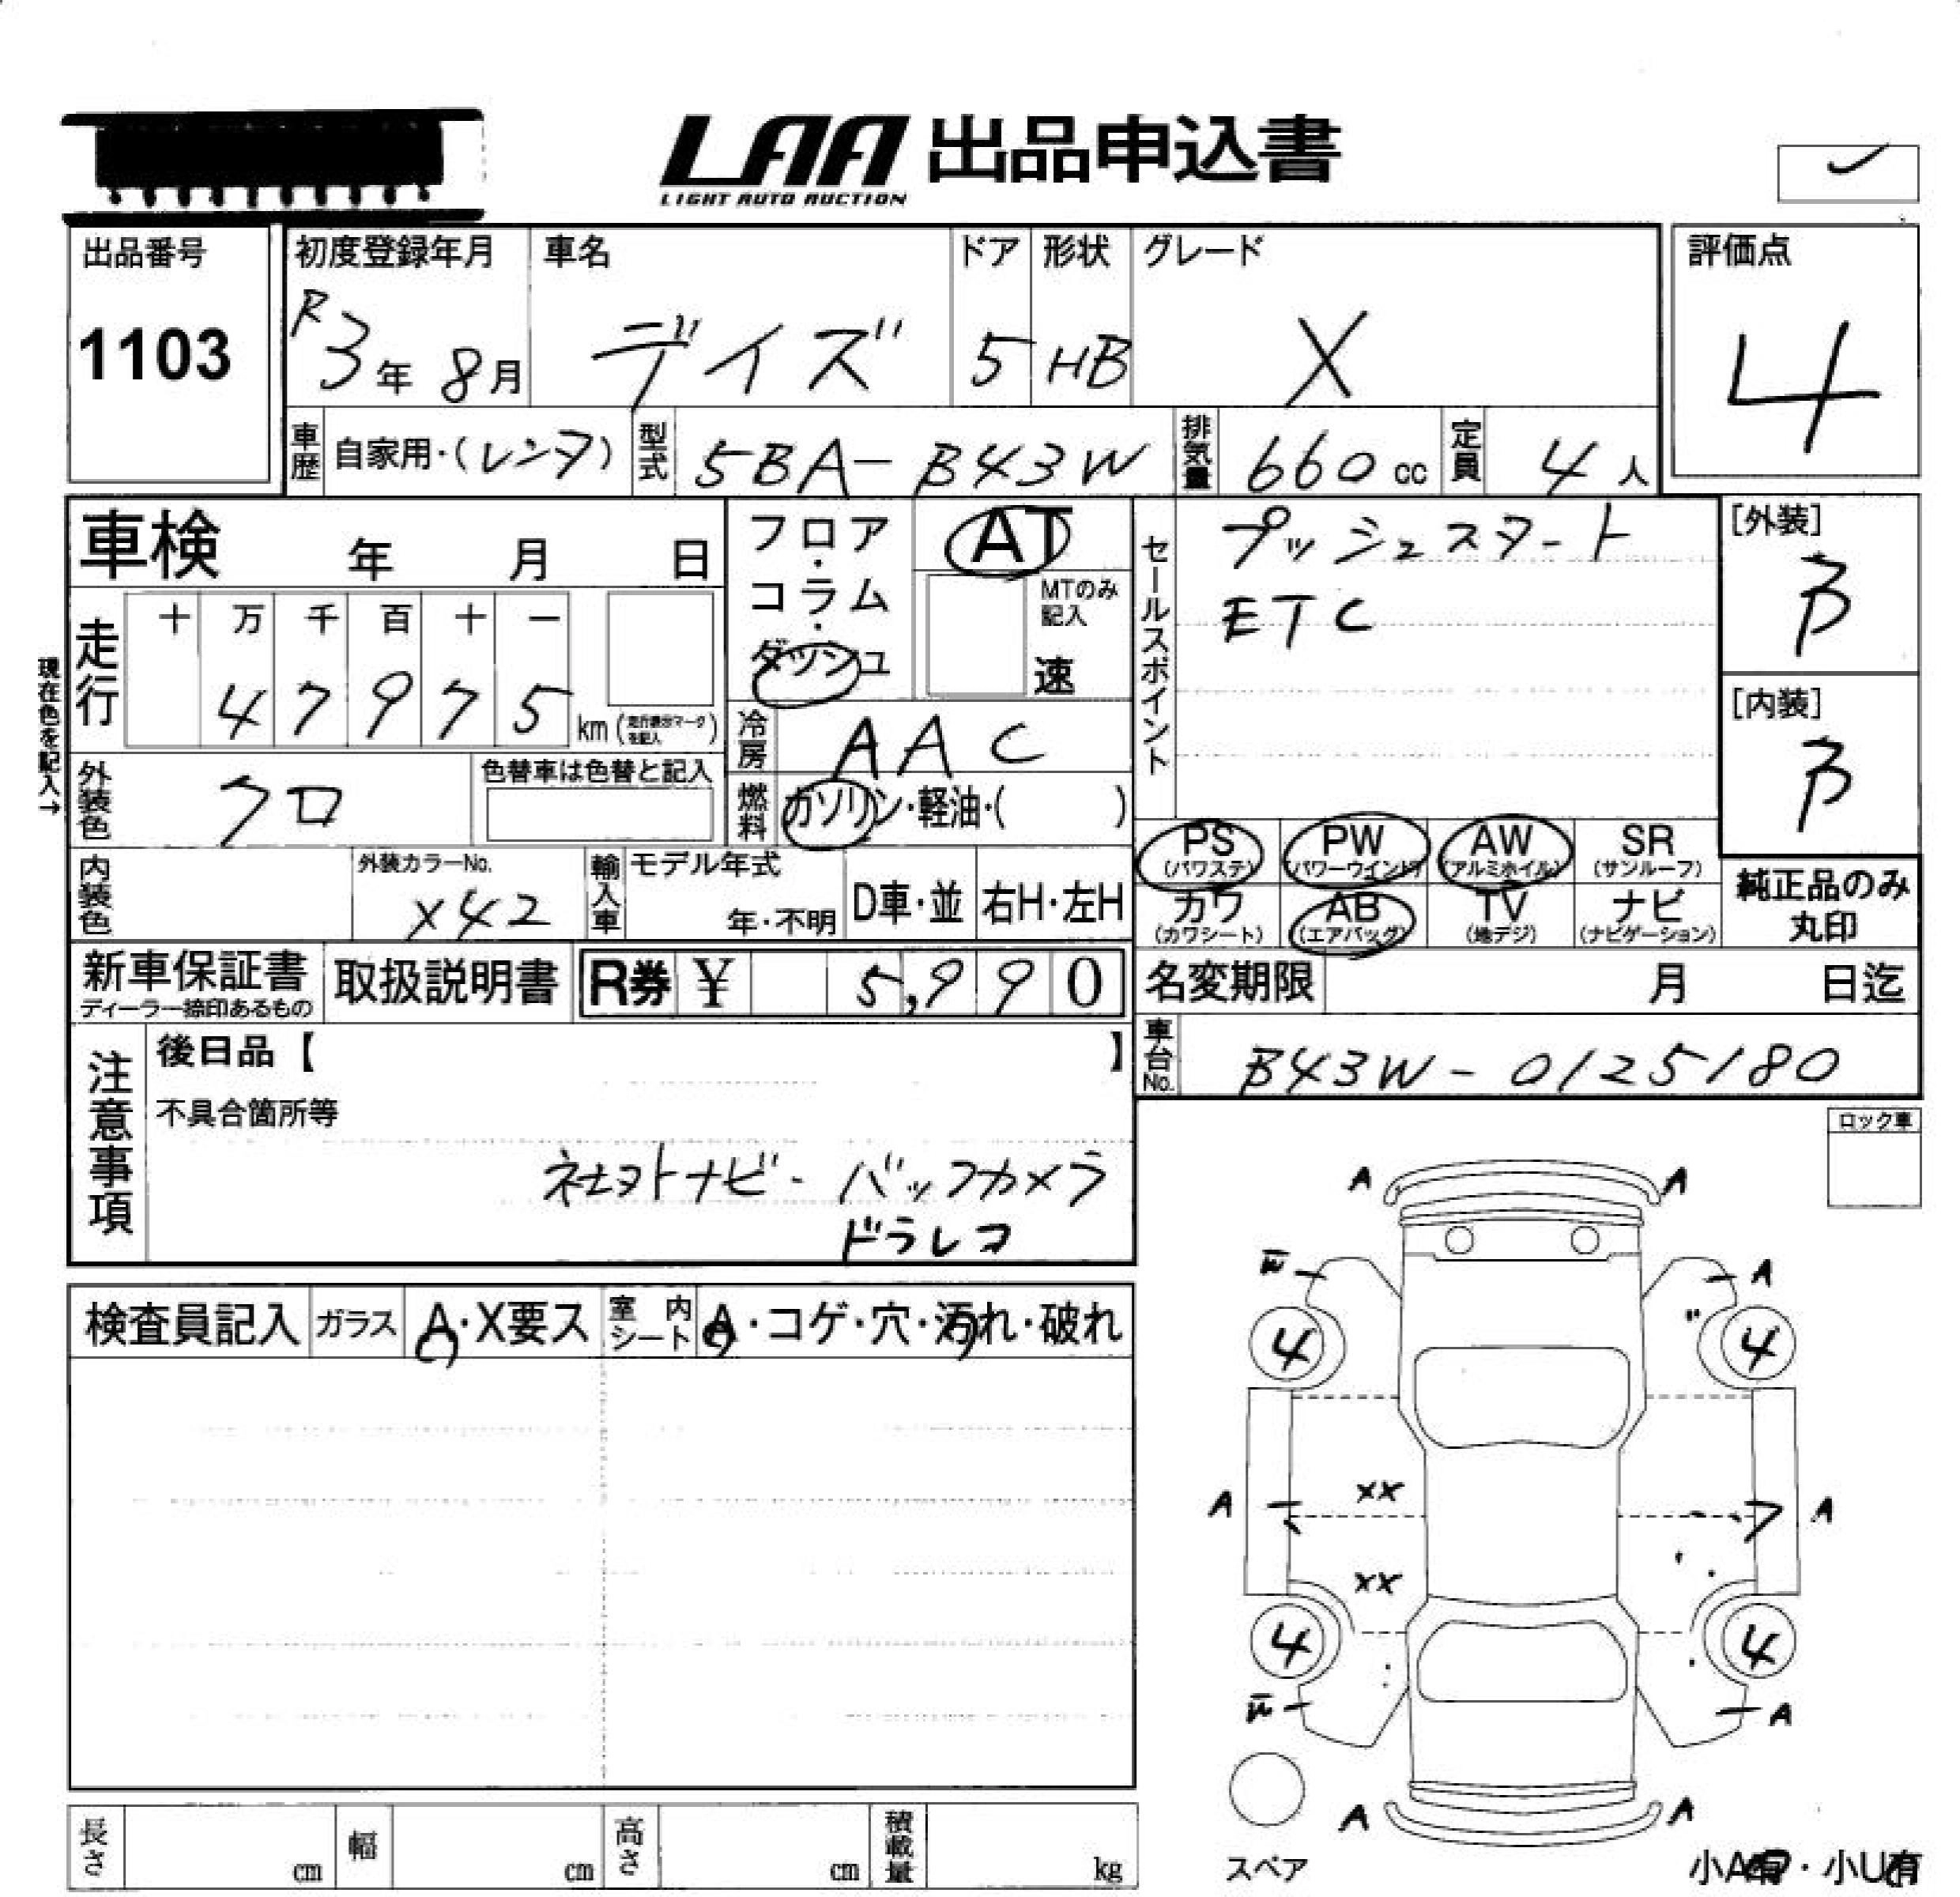 LAA 出品申込書
LIGHT AUTO AUCTION
出品番号
1103
初度登録年月
R3年 8月
車名
デイズ
ドア
5
形状
HB
グレード
X
評価点
4
車歴 自家用・(レンタ)
型式 5BA-B43W
排気量 660 cc
定員 4人
車検 年 月 日
走行
十 万 千 百 十 一
4 7 9 7 5 km (走行表示マークを記入)
現在色を記入→
外装色 クロ
色替車は色替と記入
フロア・コラム・ダッシュ
AT
MTのみ記入
速
冷房 AAC
燃料 ガソリン・軽油・( )
セールスポイント
プッシュスタート
ETC
[外装]
B
[内装]
B
PS (パワステ)
PW (パワーウインド)
AW (アルミホイル)
SR (サンルーフ)
カワ (カワシート)
AB (エアバッグ)
TV (地デジ)
ナビ (ナビゲーション)
純正品のみ丸印
内装色
外装カラーNo.
X42
輸入車
モデル年式
年・不明
D車・並
右H・左H
新車保証書
ディーラー捺印あるもの
取扱説明書
R券 ¥ 5,990
名変期限 月 日迄
車台No. B43W-0125180
注意事項
後日品【 】
不具合箇所等
社外ナビ・バックカメラ
ドラレコ
ロック車
検査員記入
ガラス A・X要ス
室内シート A・コゲ・穴・汚れ・破れ
A A
W A
4 4
A XX A
XX
4 4
W A
A A
スペア
小A有・小U有
長さ cm
幅 cm
高さ cm
積載量 kg